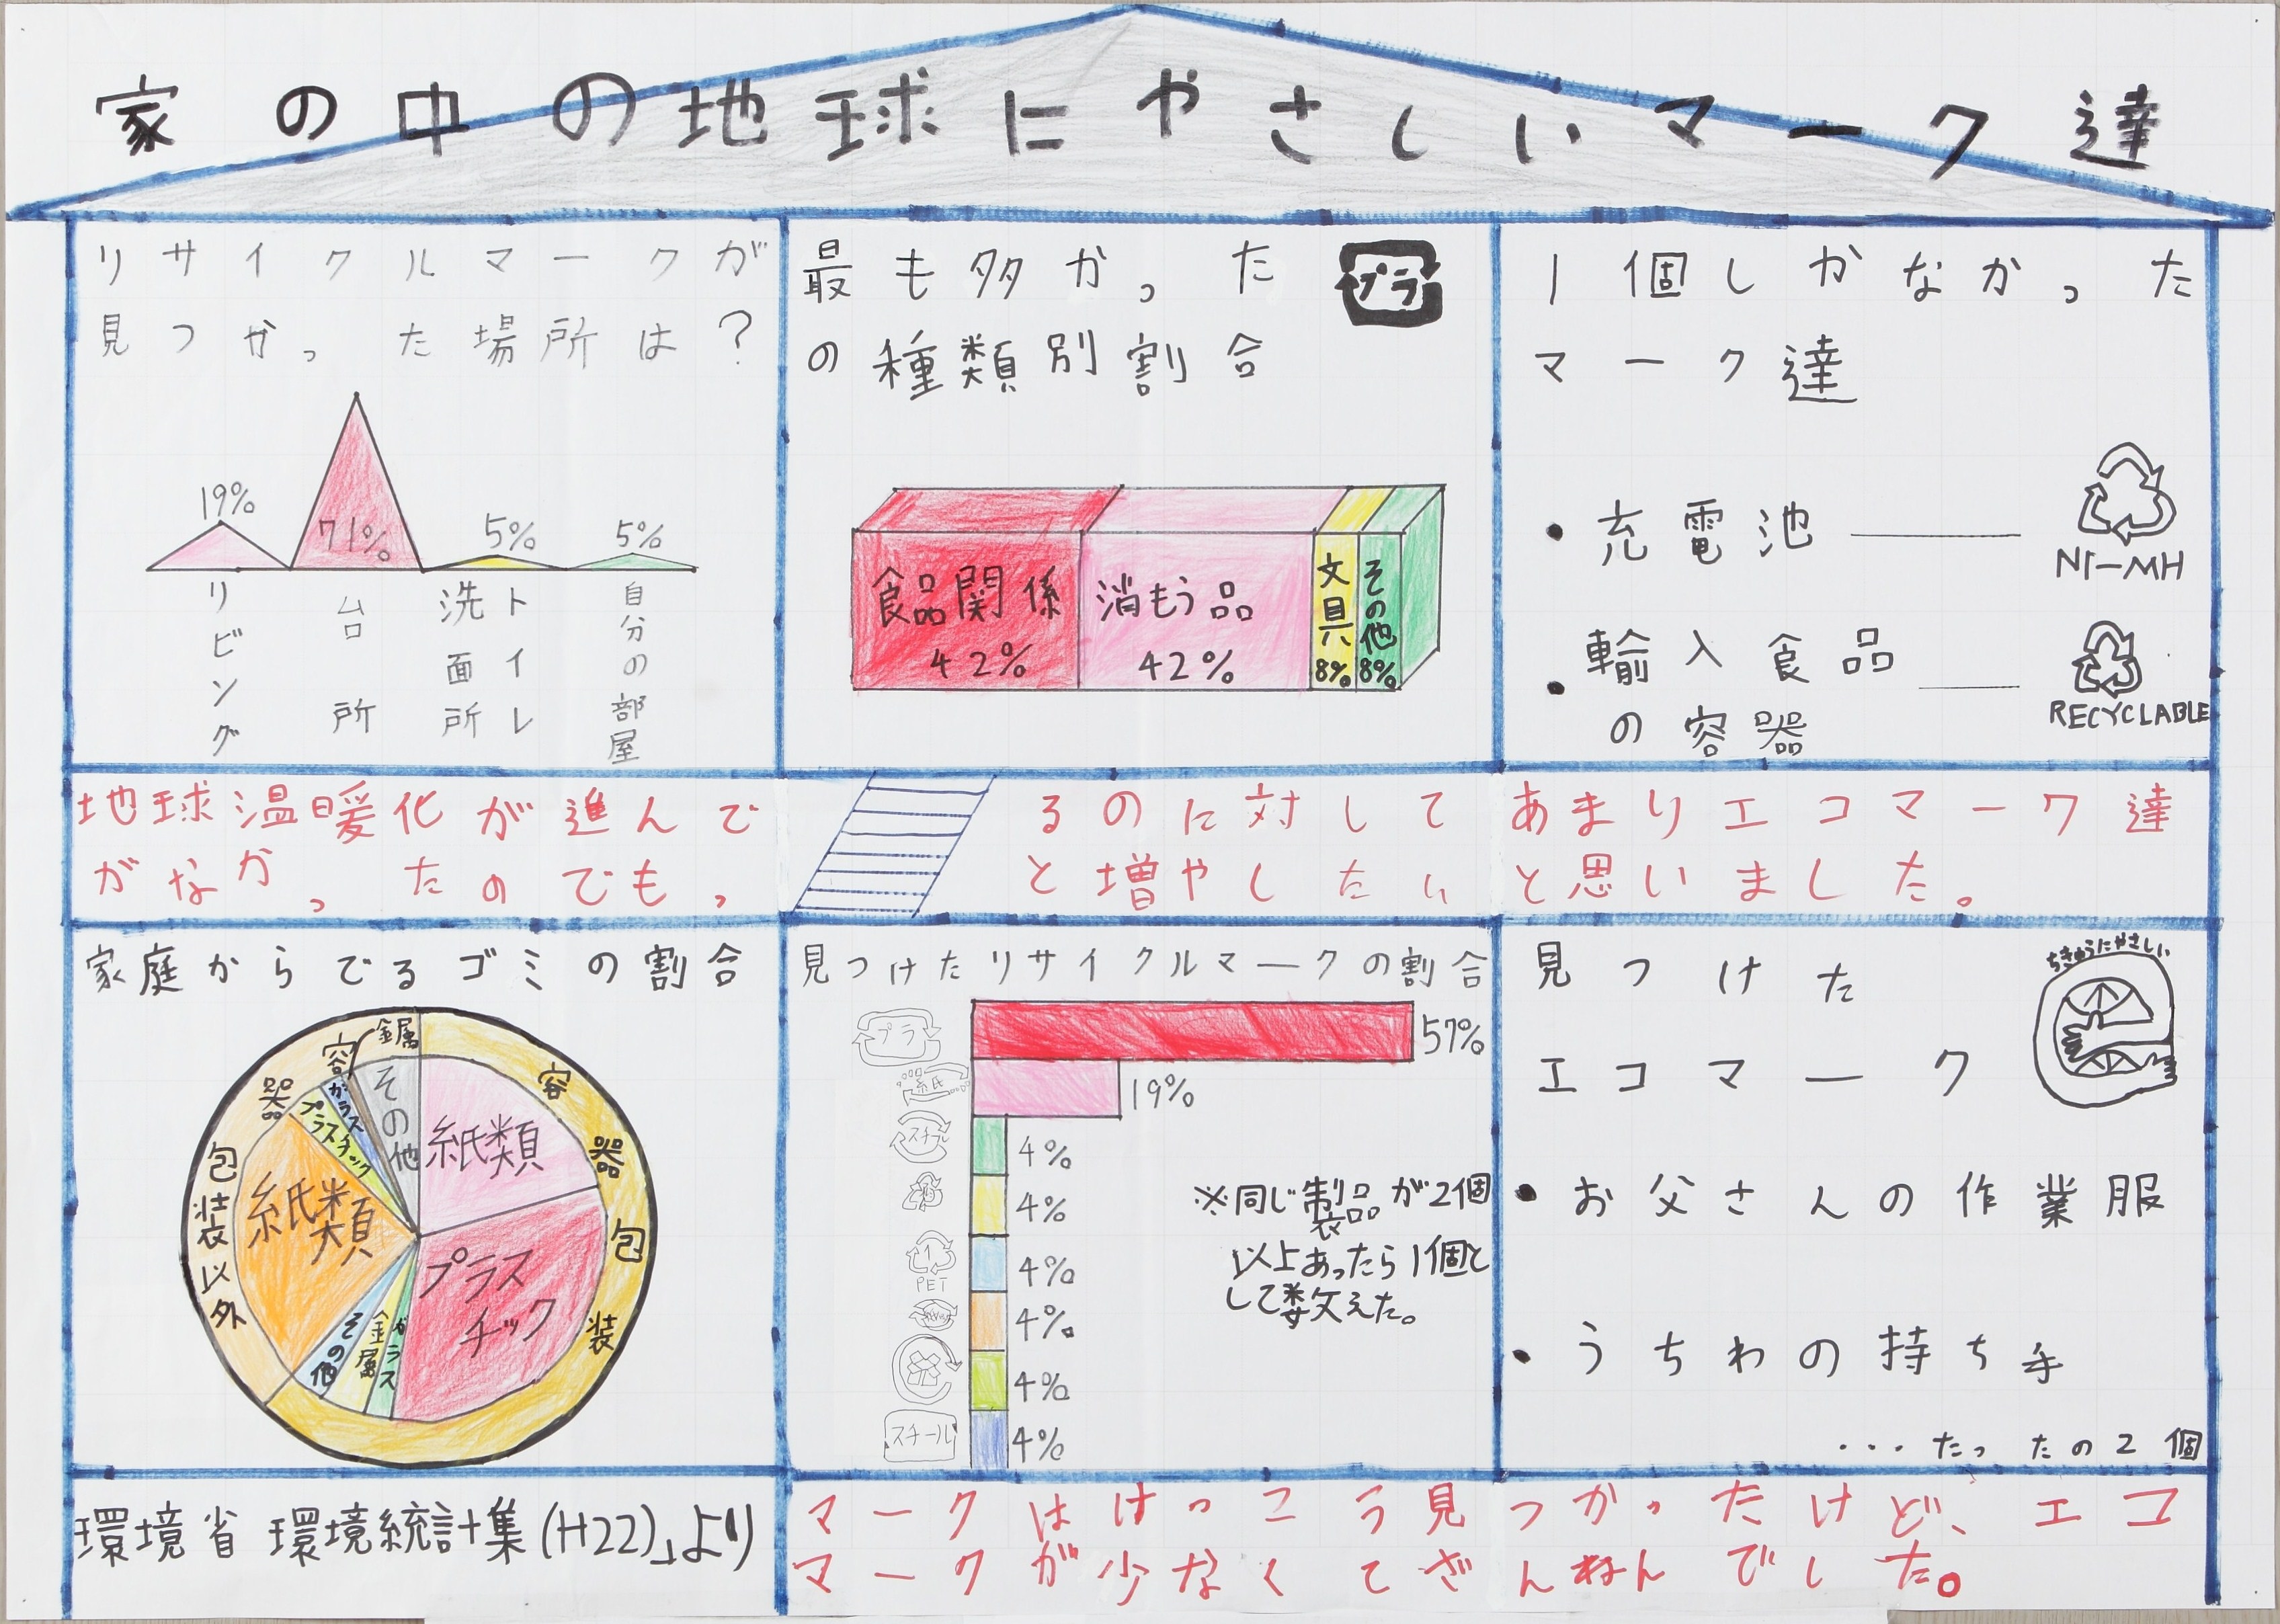 家の中の地球にやさしいマーク達
リサイクルマークが
見つかった場所は?
19%
71%
5%
5%
リビング
台所
洗面所
トイレ
自分の部屋
最も多かった
プラ
の種類別割合
食品関係
42%
消もう品
42%
文具
8%
その他
8%
1個しかなかった
マーク達
・充電池
NI-MH
・輸入食品
の容器
RECYCLABLE
地球温暖化が進んでるのに対してあまりエコマーク達
がなかったのでもっと増やしたいと思いました。
家庭からでるゴミの割合
容器包装
紙類
プラス
チック
ガラス
金属
その他
容器包装以外
紙類
プラスチック
ガラス
金属
その他
見つけたリサイクルマークの割合
プラ
57%
紙
19%
スチール
4%
4%
1
PET
4%
4%
4%
スチール
4%
※同じ製品が2個
以上あったら1個と
して数えた。
見つけた
エコマーク
ちきゅうにやさしい
・お父さんの作業服
・うちわの持ち手
・・・たったの2個
環境省 環境統計集(H22)」より
マークはけっこう見つかったけど、エコ
マークが少なくてざんねんでした。